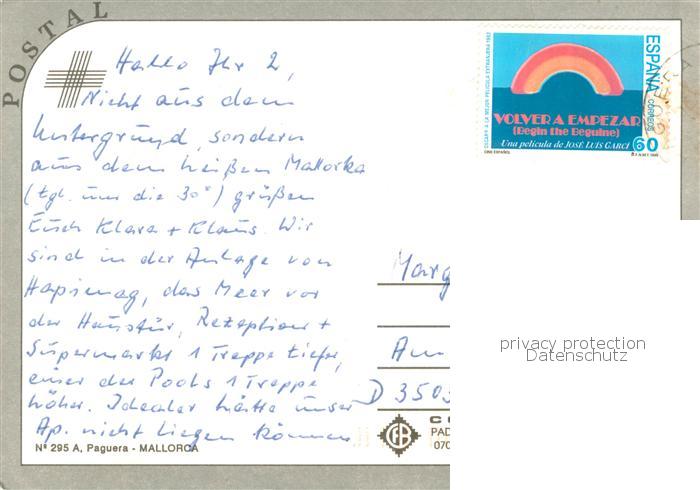 POSTAL
Hallo Ihr 2,
Nicht aus dem
Untergrund, sondern
aus dem heißen Mallorka
(tgl. um die 30°) grüßen
Euch Klara + Klaus. Wir
sind in der Anlage von
Hapimag, das Meer vor
der Haustür, Rezeption +
Supermarkt 1 Treppe tiefer,
einer der Pools 1 Treppe
höher. Idealer hätte unser
Ap. nicht liegen können
Nº 295 A, Paguera - MALLORCA
OSCAR A LA MEJOR PELICULA EXTRANJERA 1982
ESPAÑA
CORREOS
VOLVER A EMPEZAR
(Begin the Beguine)
Una película de JOSÉ LUIS GARCI
60
CINE ESPAÑOL
Marg
Am
D 3503
PAD
070
privacy protection
Datenschutz